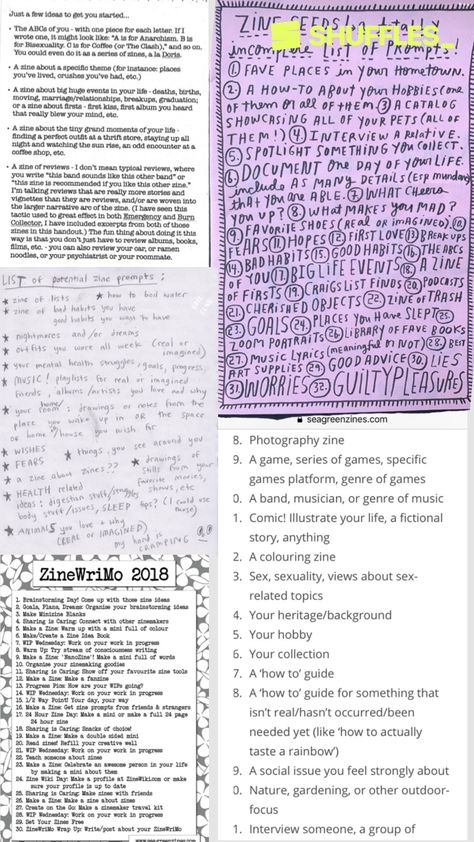 Just a few ideas to get you started...
• The ABCs of you - with one piece for each letter. If I
wrote one, it might look like: "A is for Anarchism. B is
for Bisexuality. C is for Coffee (or The Clash)," and so on.
You could even do it as a series of zines, a la Doris.
• A zine about a specific theme (for instance: places
you've lived, crushes you've had, etc.)
• A zine about big huge events in your life - deaths, births,
moving, marriage/relationships, breakups, graduation;
or a zine about firsts - first kiss, first album you heard
that really blew your mind, etc.
• A zine about the tiny grand moments of your life -
finding a perfect outfit at a thrift store, staying up all
night and watching the sun rise, an odd encounter at a
coffee shop, etc.
• A zine of reviews - I don't mean typical reviews, where
you write "this band sounds like this other band" or
"this zine is recommended if you like this other zine."
I'm talking reviews that are really more stories and
vignettes than they are reviews, and/or are woven into
the larger narrative arc of the zine. (I have seen this
tactic used to great effect in both Emergency and Burn
Collector. I have included excerpts from both of those
zines in this handout.) The fun thing about doing it
this way is that you don't just have to review albums, books,
films, etc. - you can also review your car, or ramen
noodles, or your psychiatrist or your roommate.
SHUFFLES
ZINE SEEDS
incomplete List of Prompts
① FAVE PLACES in YOUR HOMETOWN.
② A HOW-TO ABOUT YOUR HOBBIES (one
of them or all of them. ③ A CATALOG
SHOWCASING ALL OF YOUR PETS (ALL OF
THEM!) ④ INTERVIEW A RELATIVE.
⑤ SPOTLIGHT SOMETHING YOU COLLECT.
⑥ DOCUMENT ONE DAY OF YOUR LIFE.
include AS MANY DETAILS (Esp mundane)
THAT YOU ARE ABLE. ⑦ WHAT CHEERS
YOU UP? ⑧ WHAT MAKES YOU MAD?
⑨ FAVORITE SHOES (REAL or imagined). ⑩
FEARS ⑪ HOPES ⑫ FIRST LOVE ⑬ BREAKUPS
⑭ BAD HABITS ⑮ GOOD HABITS ⑯ THE ABCs
OF YOU ⑰ BIG LIFE EVENTS ⑱ A ZINE
OF FIRSTS ⑲ CRAIGSLIST FINDS ⑳ PODCASTS
㉑ CHERISHED OBJECTS ㉒ ZINE OF TRASH
㉓ GOALS ㉔ PLACES YOU HAVE SLEPT ㉕
ZOOM PORTRAITS ㉖ LIBRARY OF FAVE BOOKS
㉗ MUSIC LYRICS (MEANINGFUL or NOT) ㉘ BEST
ART SUPPLIES ㉙ GOOD ADVICE ㉚ LIES
㉛ WORRIES ㉜ GUILTY PLEASURE)
seagreenzines.com
LIST of potential zine prompts:
★ zine of lists ★ how to boil water
★ zine of bad habits you have
good habits you want to have
★ nightmares and/or dreams
★ outfits you wore all week (real or
imagined)
★ your mental health struggles, goals, progress,
★ MUSIC! playlists for real or imagined
friends, albums/artists you love and why
★ your room/home: drawings or notes from the
place you wake up in OR the space
or home/house you wish for
★ WISHES ★ things you see around you
★ FEARS
★ a zine about zines?? ★ drawings of
stills from your
favorite movies,
shows, etc
★ HEALTH related
ideas: digestion stuff/struggles
body stuff/issues, SLEEP tips? (I could use
those)
★ ANIMALS you love & why
(REAL or IMAGINED)
my hand is
CRAMPING
ZineWriMo 2018
1. Brainstorming Day! Come up with those zine ideas
2. Goals, Plans, Dreams: Organise your brainstorming ideas
3. Make Minizine Blanks
4. Sharing is Caring: Connect with other zinemakers
5. Make a Zine: Warm up with a mini full of colour
6. Make/Create a Zine Idea Book
7. WIP Wednesday: Work on your work in progress
8. Warm Up: Try stream of consciousness writing
9. Make a Zine: 'NanoZine'! Make a mini full of words
10. Organise your zinemaking goodies
11. Sharing is Caring: Show off your favourite zine tools
12. Make a Zine: Make a fanzine
13. Progress Pics: How are your WIPs going?
14. WIP Wednesday: Work on your work in progress
15. 1/2 Way Point! Your day, your way
16. Make a Zine: Get zine prompts from friends & strangers
17. 24 Hour Zine Day: Make a mini or make a full 24 page
24 hour zine
18. Sharing is Caring: Snacks of choice!
19. Make a Zine: Make a double sided mini
20. Read zines! Refill your creative well
21. WIP Wednesday: Work on your work in progress
22. Teach someone about zines
23. Make a Zine: Celebrate an awesome person in your life
by making a mini about them
24. Zine Wiki Day: Make a profile at ZineWiki.com or make
sure your profile is up to date
25. Sharing is Caring: Make zines with friends
26. Make a Zine: Make a zine about zines
27. Create on the Go: Make a zinemaker travel kit
28. WIP Wednesday: Work on your work in progress
29. Set Your Zines Free
30. ZineWriMo Wrap Up: Write/post about your ZineWriMo
www.seagreenzines.com
8. Photography zine
9. A game, series of games, specific
games platform, genre of games
0. A band, musician, or genre of music
1. Comic! Illustrate your life, a fictional
story, anything
2. A colouring zine
3. Sex, sexuality, views about sex-
related topics
4. Your heritage/background
5. Your hobby
6. Your collection
7. A 'how to' guide
8. A 'how to' guide for something that
isn't real/hasn't occurred/been
needed yet (like 'how to actually
taste a rainbow')
9. A social issue you feel strongly about
0. Nature, gardening, or other outdoor-
focus
1. Interview someone, a group of